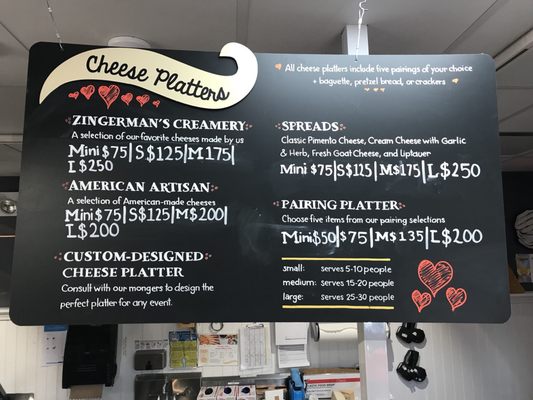 Cheese Platters
ZINGERMAN'S CREAMERY
A selection of our favorite cheeses made by us
Mini $75|S $125|M 175|
L $250
AMERICAN ARTISAN
A selection of American-made cheeses
Mini $75|S $125|M $200|
L $200
CUSTOM-DESIGNED
CHEESE PLATTER
Consult with our mongers to design the
perfect platter for any event.
All cheese platters include five pairings of your choice
+ baguette, pretzel bread, or crackers
SPREADS
Classic Pimento Cheese, Cream Cheese with Garlic
& Herb, Fresh Goat Cheese, and Liptauer
Mini $75|S $125|M $175|L $250
PAIRING PLATTER
Choose five items from our pairing selections
Mini $50|$75|M $135|L $200
small: serves 5-10 people
medium: serves 15-20 people
large: serves 25-30 people